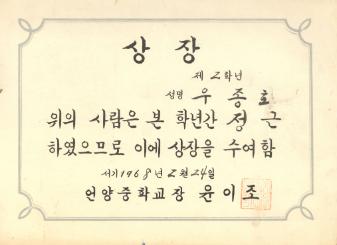 상장
제 2 학년
성명 우종호
위의 사람은 본 학년간 정근
하였으므로 이에 상장을 수여함
서기 1968 년 2 월 24 일
언양중학교장 윤이조